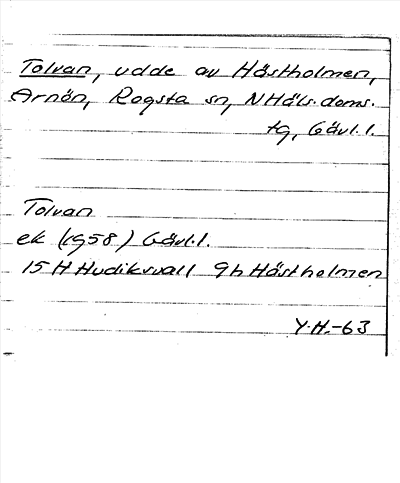 Tolvan, udde av Hästholmen,
Arnön, Rogsta sn, N Häls. doms.
tg, Gävl.l.
Tolvan
ek (1958) Gävl.l.
15 H Hudiksvall 9h Hästholmen
Y.H.-63